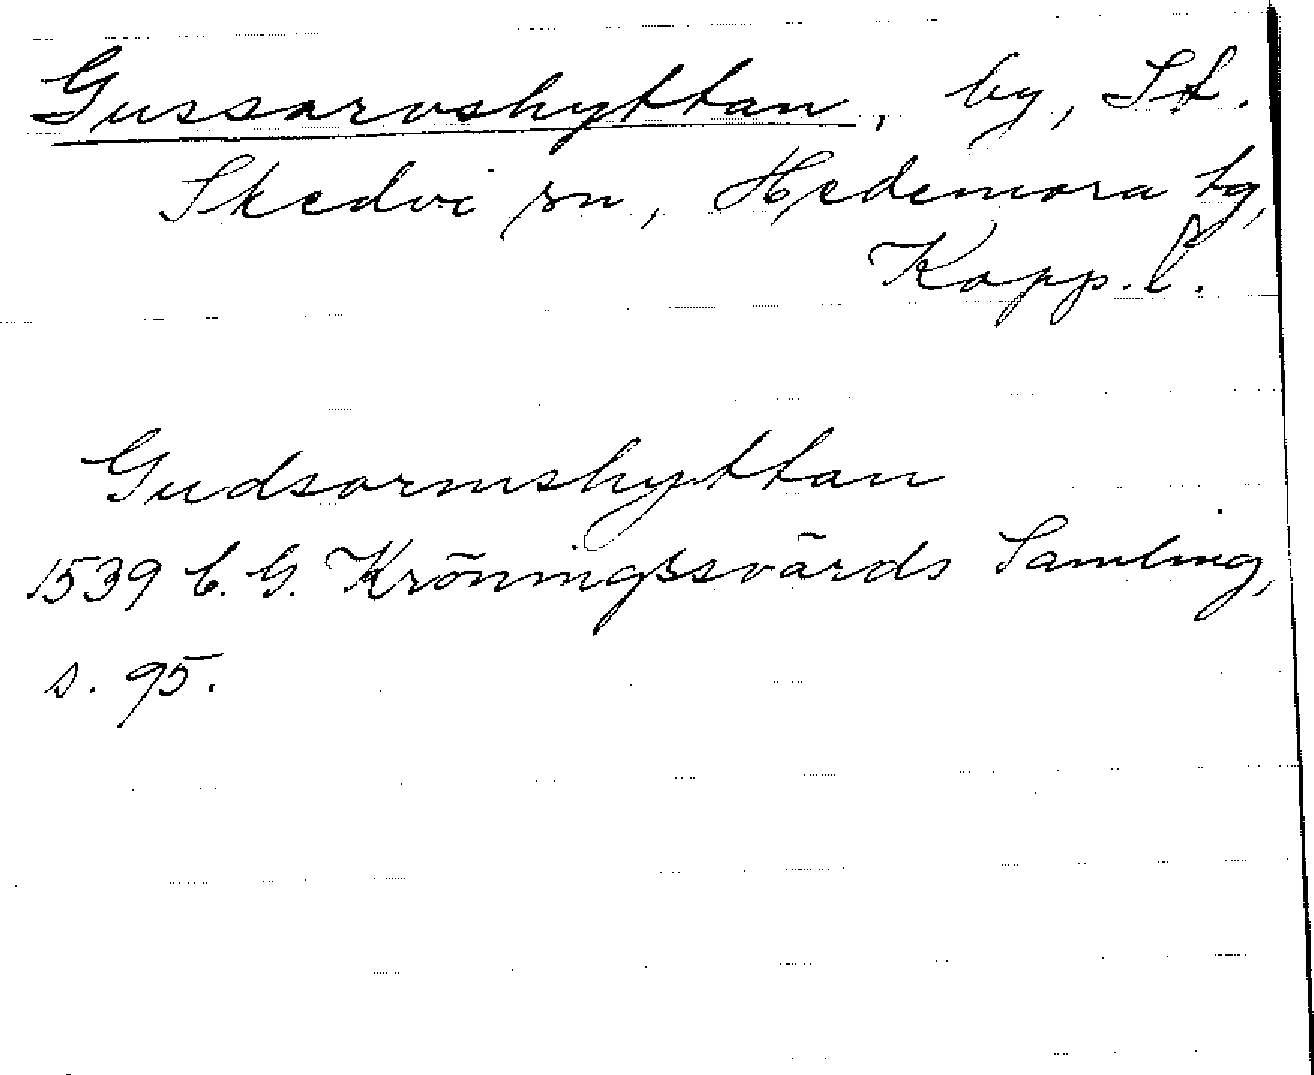 Gussarvshyttan, by, St.
Skedvi sn, Hedemora tg,
Kopp. l.
Gudsormshyttan
1539 C. G. Kröningssvärds Samling,
s. 95.